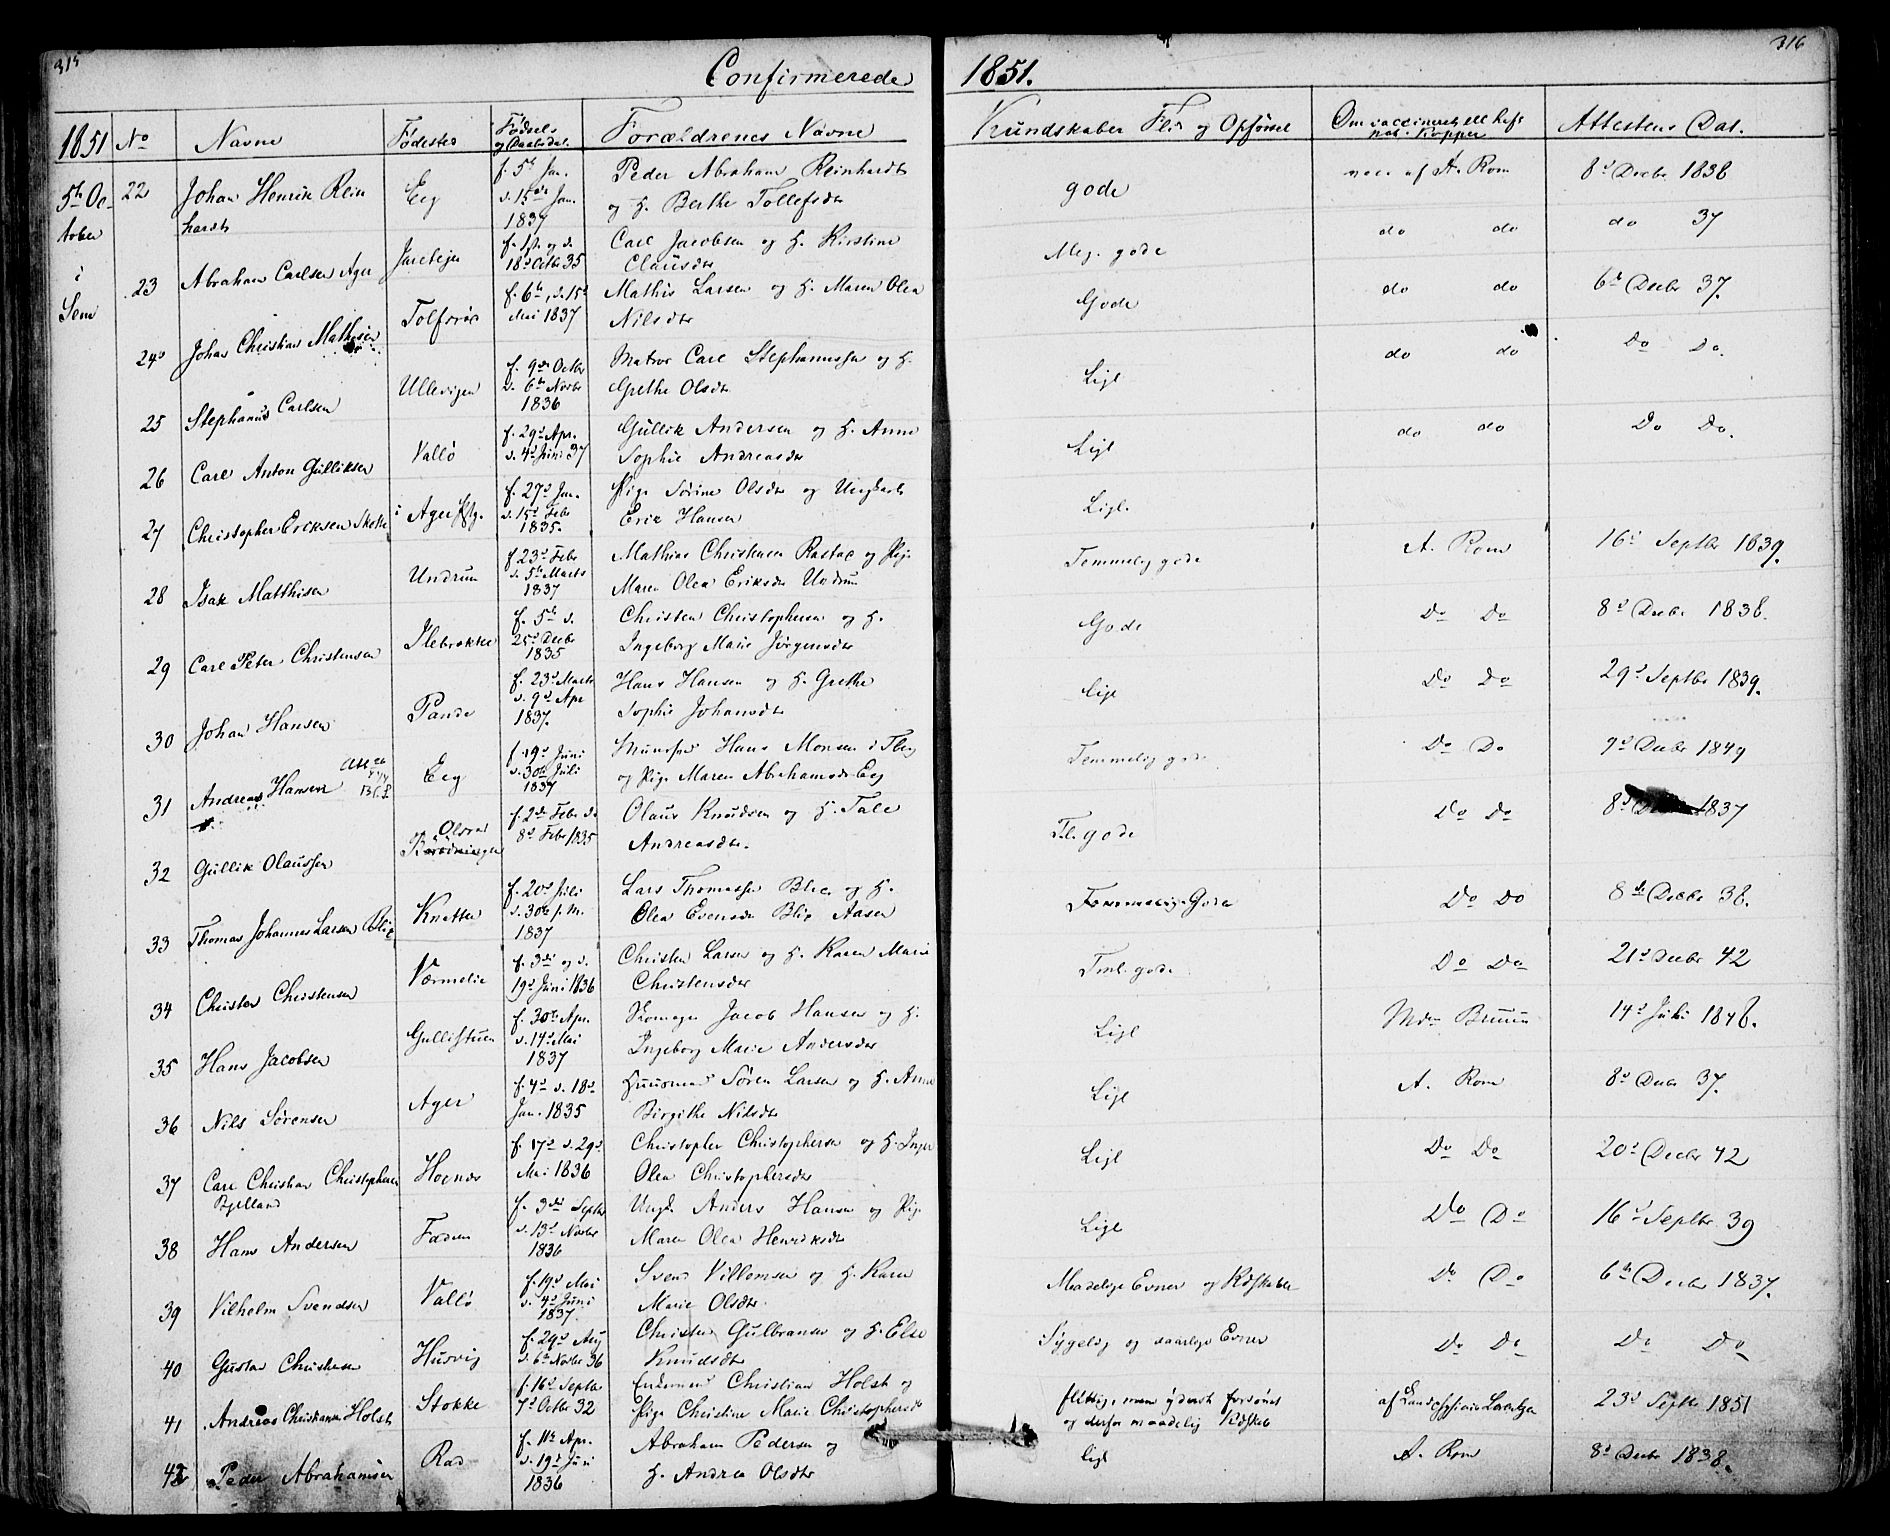 315
Confirmerede
1851.
316
1851 No Navne Fødested Fødsels og Daabsdat. Forældrenes Navne Kundskaber Flid og Opførsel Om vaccineret ell. haft nat. Kopper Attestens Dat.
5te October i Sem
22 Johan Henrik Reinhardt Eeg f. 5te Jan. d. 15de Jan. 1837 Peder Abraham Reinhardt og H. Berthe Tollefsdtr gode vacc af A. Rom 8de Decbr 1838
23 Abraham Carlsen Ager Jarlseje f. 1ste og d. 18de Octbr 35 Carl Jacobsen og H. Kirstine Clausdtr Meg. gode do do do 37
24 Johan Christian Mathisen Tolfsrød f. 6te, d. 15de Mai 1837 Mathis Larsen og H. Maren Olea Nilsdtr Gode do do 6te Decbr 37.
25 Stephanus Carlsen Ullevigen f. 9de Octbr d. 6te Novbr 1836 Matros Carl Stephanussen og H. Grethe Olsdtr Ligl do do Do Do.
26 Carl Anton Gulliksen Vallø f. 29de Apr. d. 4de Juni 37 Gullik Andersen og H. Anne Sophie Andreasdtr Ligl do do Do Do.
27 Christopher Ericksen i Ager f. 27de Jan. d. 15de Febr 1835. Pige Sørine Olsdtr og Ungkarl Eric Hansen Ligl.
28 Isak Matthisen Undrum f. 23de Febr d. 5te Marts 1837 Mathias Christensen Rastad og Pige Maren Olea Eriksdtr Undrum Temmelig gode A. Rom 16de Septbr 1839.
29 Carl Peter Christensen Ilebrække f. 5te d. 25de Decbr 1835 Christen Christophersen og H. Ingeborg Marie Jørgensdtr Gode Do Do 8de Decbr 1838.
30 Johan Hansen Pande f. 23de Marts d. 9de Apr 1837. Hans Hansen og H. Grethe Sophie Johansdtr Ligl Do Do 29de Septbr 1839.
31 Andreas Hansen Eeg f. 19de Juni d. 30te Juli 1837 Hans Monsen i og Pige Maren Abrahamsdtr Eeg Temmelig gode Do Do 9de Decbr 1849
32 Gullik Olaussen f. 2den Febr d. 8de Febr 1835 Olaus Knudsen og H. Tale Andreasdtr. Tl. gode Do Do 8de Decbr 1837
33 Thomas Johannes Larsen Blix Knatten f. 20de Juli d. 30te s. M. 1837 Lars Thomassen Blix og H. Olea Evensdtr Blix Aasen Temmelig Gode Do Do 8de Decbr 38.
34 Christen Christensen Værmelie f. 3die og d. 19de Juni 1836 Christen Larsen og H. Karen Marie Christensdtr Tml. gode Do Do 21de Decbr 42
35 Hans Jacobsen Gullistuen f. 30te Apr. d. 14de Mai 1837 Skomager Jacob Hansen og H. Ingeborg Marie Andersdtr Ligl Mdm Bruun 14de Juli 1848.
36 Nils Sørensen Ager f. 4de d. 18de Jan. 1835 Huusmand Søren Larsen og H. Anne Birgithe Nilsdtr Ligl A. Rom 8de Decbr 37.
37 Carl Christian Christophersen Bjelland Hognæs f. 17de d. 29de Mai 1836 Christopher Christophersen og H. Inger Olea Christophersdtr Ligl Do Do 20de Decbr 42
38 Hans Andersen Faden f. 3die Septbr d. 13de Novbr 1836 Ungk. Anders Hansen og Pige Maren Olea Henriksdtr Ligl Do Do 16de Septbr 39
39 Vilhelm Svendsen Vallø f. 19de Mai d. 4de Juni 1837. Svend Villemsen og H. Karen Marie Olsdtr. Maadelige Evner og Kdskaber Do Do 6te Decbr 1837.
40 Gustav Christensen Husvig f. 29de Aug d. 6te Novbr 36 Christen Gulbransen og H. Else Knudsdtr Sygelig og saarlige Evner Do Do Do Do
41 Andreas Christiansen Holst Stokke f. 16de Septbr 7de Octbr 32 Christian Holst og Pige Christine Marie Christophersdtr flittig, men yderst forsømt og derfor maadelig Kdskab af Landphysicus Lorentzen 23de Septbr 1851
42 Peder Abrahamsen Rød f. 11te Apr. d. 19de Juni 1836 Abraham Pedersen og H. Andrea Olsdtr ligl A. Rom 8de Decbr 1838.